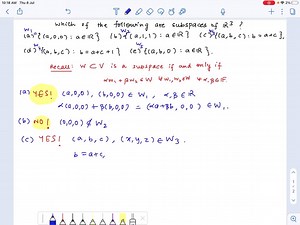 10:18 AM Thu 8 Jul
which of the following are subspaces of R³?
W₁ W₂ W₃
(a) {(a,0,0) : a∈R} (b) {(a,1,1) : a∈R} (c) {(a,b,c) : b=a+c},
W₄ W₅
(d) {(a,b,c) : b=a+c+1} (e) {(a,b,0) : a∈R}.
Recall: W⊂V is a subspace if and only if
αw₁+βw₂∈W ∀ w₁,w₂∈W ∀ α,β∈F.
(a) YES! (a,0,0), (b,0,0) ∈ W₁, α,β∈R
α(a,0,0) + β(b,0,0) = (αa+βb, 0,0) ∈ W₁.
(b) NO! (0,0,0) ∉ W₂
(c) YES! (a,b,c), (x,y,z) ∈ W₃.
b=a+c,